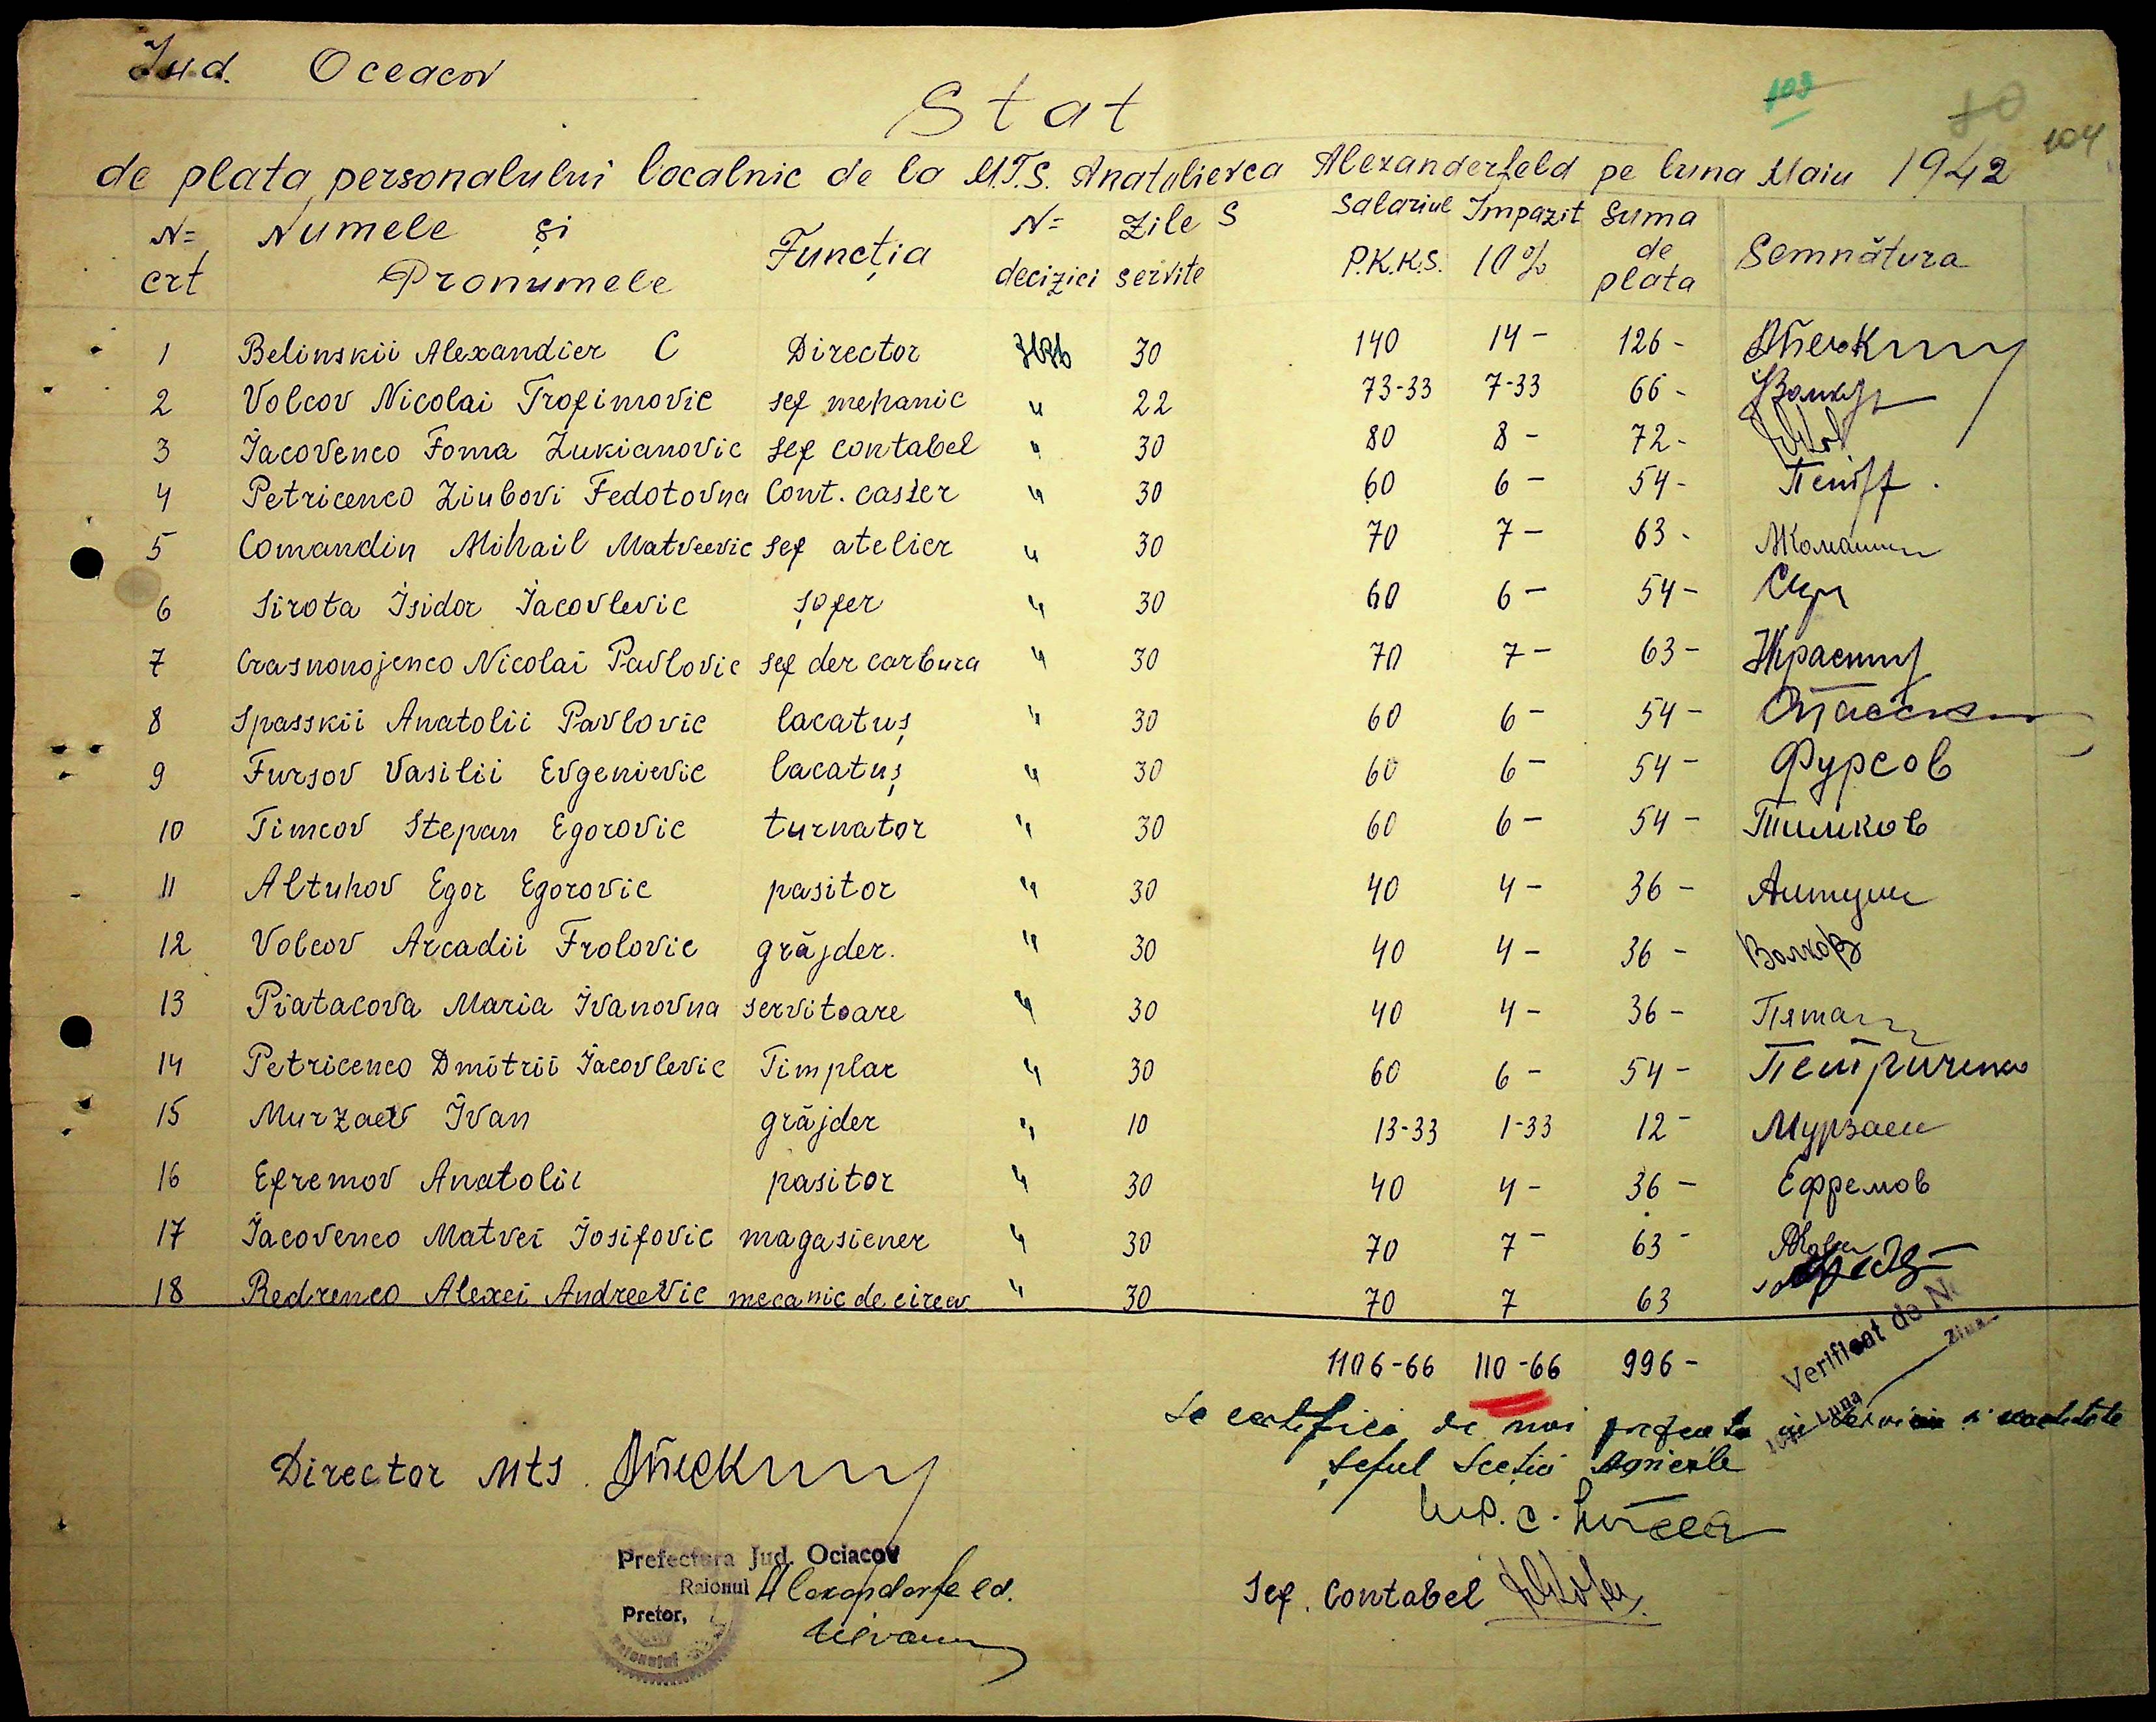 Jud. Oceacov
109
80
104
Stat
de plata personalului localnic de la M.T.S. Anatolievca Alexanderfeld pe luna Maiu 1942
N= crt Numele și Pronumele Funcția N= deciziei Zile servite S Salariul P.K.K.S. Impozit 10% Suma de plata Semnătura
1 Belinskii Alexandier C Director 30 140 14- 126-
2 Volcov Nicolai Trofimovic sef mehanic " 22 73-33 7-33 66-
3 Iacovenco Foma Lukianovic sef contabel " 30 80 8- 72-
4 Petricenco Liubovi Fedotovna Cont. casier " 30 60 6- 54-
5 Comandin Mihail Matveevic sef atelier " 30 70 7- 63-
6 Sirota Isidor Iacovlevic șofer " 30 60 6- 54-
7 Crasnonojenco Nicolai Pavlovic sef der carbura " 30 70 7- 63-
8 Spasskii Anatolii Pavlovic lacatuș " 30 60 6- 54-
9 Fursov Vasilii Evgenievic lacatuș " 30 60 6- 54- Фурсов
10 Timcov Stepan Egorovic turnator " 30 60 6- 54- Тимков
11 Altuhov Egor Egorovic pasitor " 30 40 4- 36-
12 Volcov Arcadii Frolovic grăjder. " 30 40 4- 36- Волков
13 Piatacova Maria Ivanovna servitoare " 30 40 4- 36-
14 Petricenco Dmitrii Iacovlevic Timplar " 30 60 6- 54- Петриченко
15 Murzaev Ivan grăjder " 10 13-33 1-33 12-
16 Efremov Anatolii pasitor " 30 40 4- 36- Ефремов
17 Iacovenco Matvei Iosifovic magasiener " 30 70 7- 63-
18 Redrenco Alexei Andreevic mecanic de " 30 70 7 63
1106-66 110-66 996-
Verificat de
Ziua
Luna
Se certifica de noi
Șeful Secției Agricole
Director Mts
Prefectura Jud. Ociacov
Raionul Alexandorfeld.
Pretor,
Sef. Contabel